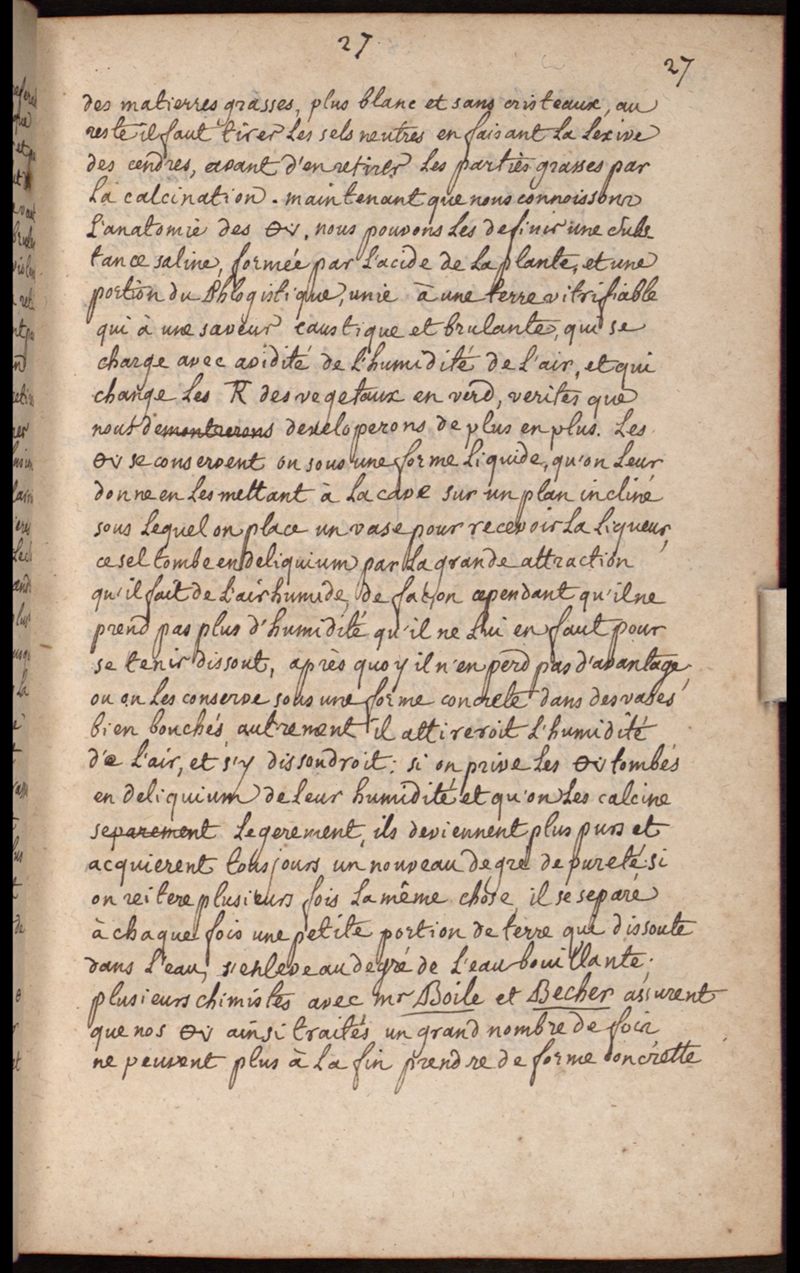 27
27
des matierres grasses, plus blanc et sans cristeaux, au
reste il faut tirer les sels neutres en faisant la lexive
des cendres, avant d'en retirer les partiës grasses par
la calcination. maintenant que nous connoissons
l'anatomie des 🜔v, nous pouvons les definir une subs
tance saline, formée par l'acide de la plante, et une
portion du Phlogistique, unie à une terre vitrifiable
qui à une saveur caustique et brulante, qui se
charge avec avidité de l'humidité de l'air, et qui
change les des vegetaux en verd, verités que
nous demontrerons developerons de plus en plus. Les
🜔v se conservent ou sous une forme liquide, qu'on leur
donne en les mettant à la cave sur un plan incliné
sous lequel on place un vase pour recevoir la liqueur,
ce sel tombe en deliquium par la grande attraction
qu'il fait de l'air humide, de façon cependant qu'il ne
prend pas plus d'humidité qu'il ne lui en faut pour
se tenir dissout, après quoy il n'en perd pas d'avantage,
ou on les conserve sous une forme concrete dans des vases
bien bouchés autrement il attireroit l'humidité
de l'air, et s'y dissoudroit: si on prive les 🜔v tombés
en deliquium de leur humidité et qu'on les calcine
separement legerement, ils deviennent plus purs et
acquierent tousjours un nouveau degré de pureté si
on reitere plusieurs fois la même chose, il se separe
à chaque fois une petite portion de terre qui dissoute
dans l'eau, s'enleve au degré de l'eau bouillante;
plusieurs chimistes avec mr Boile et Becher assurent
que nos 🜔v ainsi traités un grand nombre de fois
ne peuvent plus à la fin prendre de forme concrette